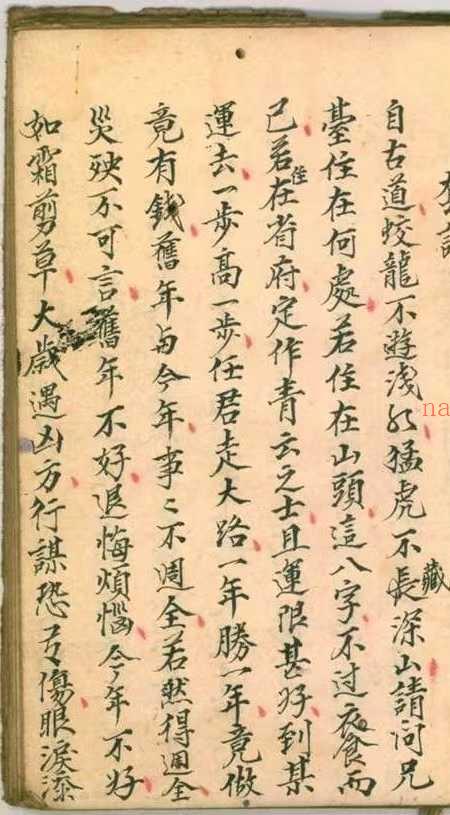 自古道蛟龍不遊浅水猛虎不長藏深山請问兄
臺住在何處若住在山頭這八字不过衣食而
已若住在省府定作青云之士且運限甚好到某
運去一步高一步任君走大路一年勝一年竟做
竟有錢舊年与今年事〻不週全若然得週全
災殃不可言舊年不好退悔煩惱今年不好
如霜剪草大歲遇凶方行謀恐有傷眼淚
na